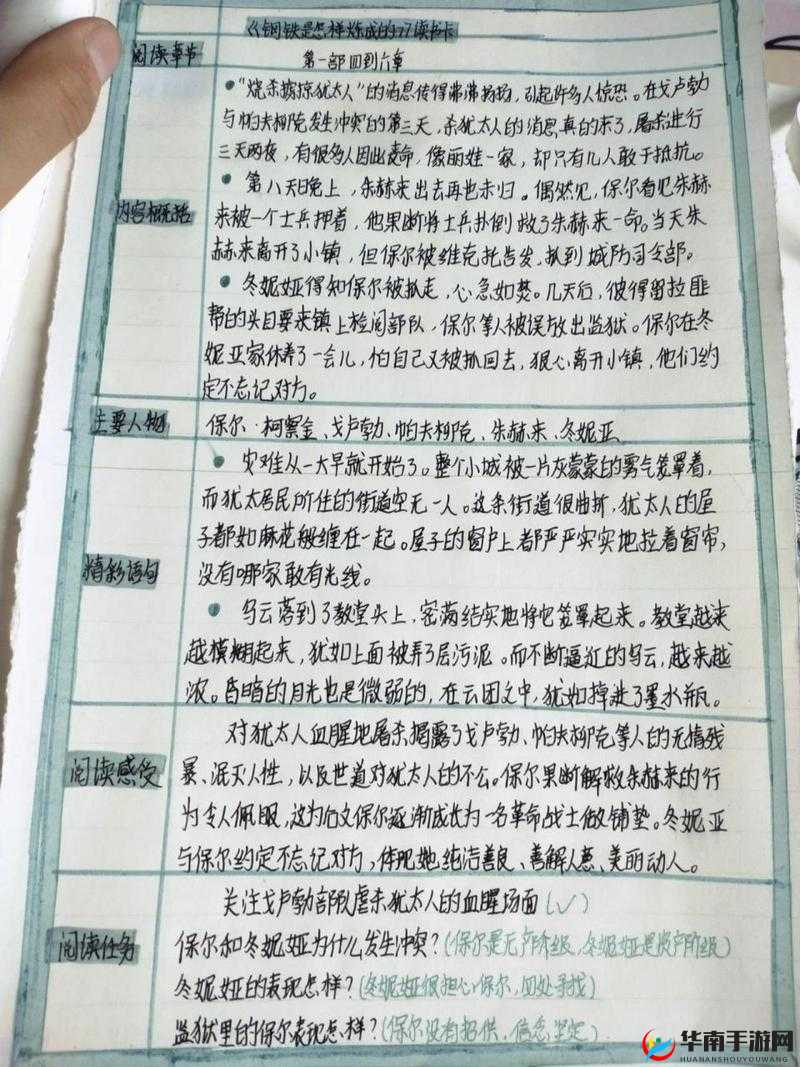 《钢铁是怎样炼成的》读书卡
阅读章节
第一部四到六章
内容概括
•“烧杀掳掠犹太人”的消息传得沸沸扬扬，引起许多人惊恐。在戈卢勃
与帕夫柳克发生冲突的第三天，杀犹太人的消息真的来了，屠杀进行
三天两夜，有很多人因此丧命，像丽娃一家，却只有几人敢于抵抗。
•第八天晚上，朱赫来出去再也未归。偶然见，保尔看见朱赫
来被一个士兵押着，他果断将士兵扑倒救了朱赫来一命。当天朱
赫来离开了小镇，但保尔被维克托告发，抓到城防司令部。
•冬妮娅得知保尔被抓走，心急如焚。几天后，彼得留拉匪
帮的头目要来镇上检阅部队，保尔等人被误放出监狱。保尔在冬
妮亚家休养了一会儿，怕自己又被抓回去，狠心离开小镇，他们约
定不忘记对方。
主要人物
保尔·柯察金、戈卢勃、帕夫柳克、朱赫来、冬妮亚
精彩语句
•灾难从一大早就开始了。整个小城被一片灰蒙蒙的雾气笼罩着，
而犹太居民所住的街道空无一人。这条街道很曲折，犹太人的屋
子都如麻花般缠在一起。屋子的窗户上都严严实实地拉着窗帘，
没有哪家敢有光线。
•乌云落到了教堂头上，密满结实地将它笼罩起来。教堂越来
越模糊起来，犹如上面被弄了层污泥。而不断逼近的乌云，越来越
浓。昏暗的月光也是微弱的，在云团之中，犹如掉进了墨水瓶。
阅读感受
对犹太人血腥地屠杀揭露了戈卢勃、帕夫柳克等人的无情残
暴、泯灭人性，以及世道对犹太人的不公。保尔果断解救朱赫来的行
为令人佩服，这为后文保尔逐渐成长为一名革命战士做铺垫。冬妮亚
与保尔约定不忘记对方，体现她纯洁善良、善解人意、美丽动人。
阅读任务
关注戈卢勃部队虐杀犹太人的血腥场面(√)
保尔和冬妮娅为什么发生冲突？(保尔是无产阶级，冬妮娅是资产阶级)
冬妮娅的表现怎样？(冬妮娅很担心保尔，四处寻找)
监狱里的保尔表现怎样？(保尔没有招供，信念坚定)
华南手游网
HUANANSHOUYOUWANG